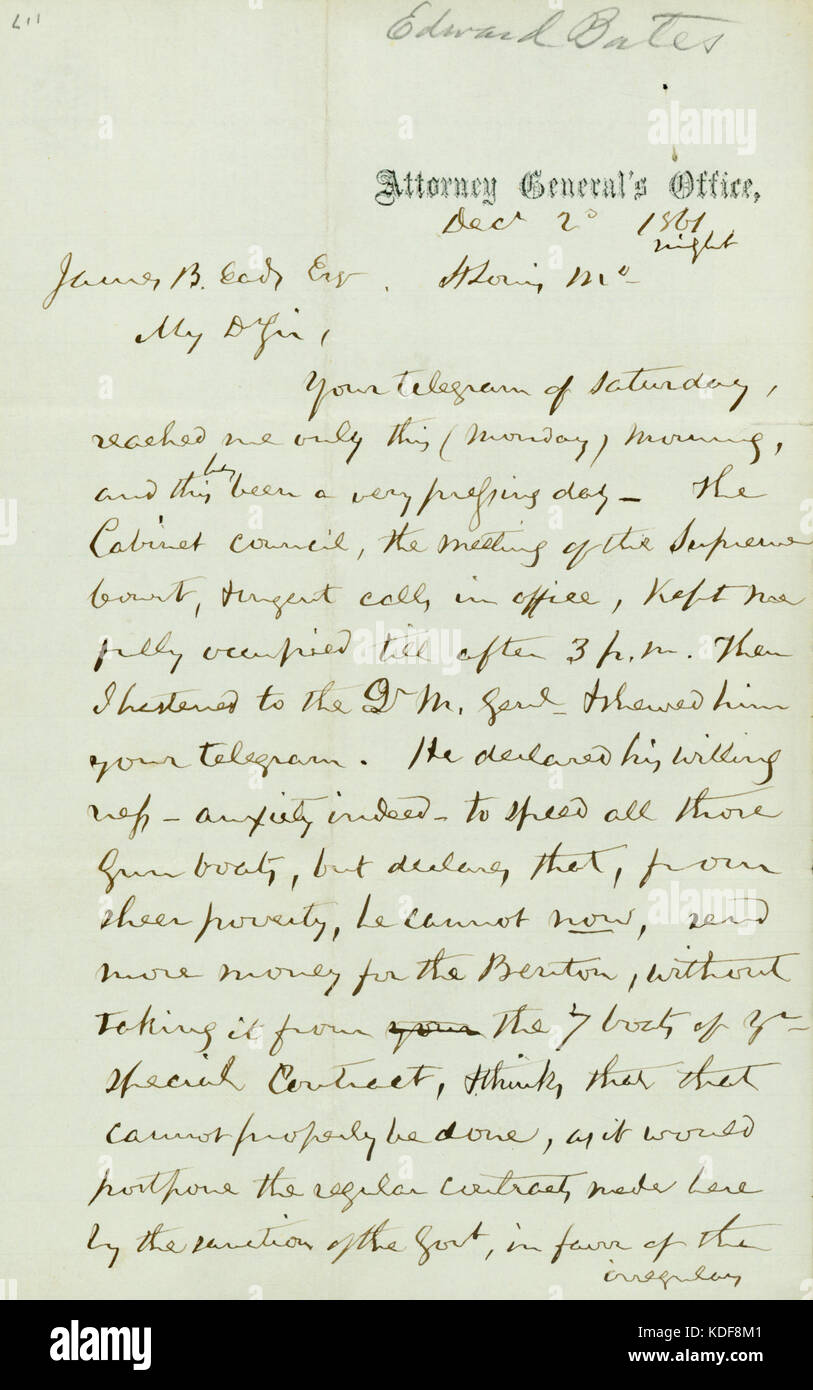 Edward Bates
Attorney General's Office,
Decr 2d 1861
night
James B. Eads Esqr. St Louis Mo
My Dr Sir,
Your telegram of Saturday,
reached me only this (Monday) morning,
has
and this been a very pressing day – The
Cabinet council, the meeting of the Supreme
Court, & urgent calls in office, kept me
fully occupied till after 3 p.m. Then
I hastened to the Qr M. Genl – & shewed him
your telegram. He declared his willing
ness – anxiety indeed – to speed all those
Gun boats, but declares that, from
sheer poverty, he cannot now, send
more money for the Benton, without
taking it from your the 7 boats of yr
special Contract, & thinks that that
cannot properly be done, as it would
postpone the regular contracts made here
by the sanction of the Govt, in favor of the
irregular
alamy stock photo
KDF8M1
www.alamy.com